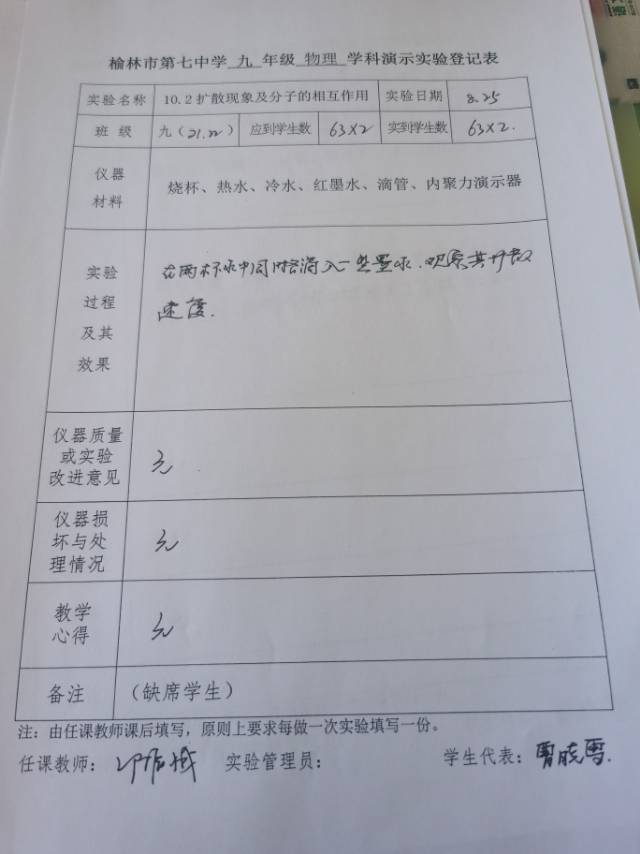 榆林市第七中学 九 年级 物理 学科演示实验登记表
实验名称 10.2扩散现象及分子的相互作用 实验日期 8.25
班 级 九（21.22） 应到学生数 63×2 实到学生数 63×2.
仪器
材料
烧杯、热水、冷水、红墨水、滴管、内聚力演示器
实验
过程
及其
效果
在两杯水中同时滴入一些墨水.观察其扩散
速度.
仪器质量
或实验
改进意见
无
仪器损
坏与处
理情况
无
教学
心得
无
备注 （缺席学生）
注：由任课教师课后填写，原则上要求每做一次实验填写一份。
任课教师： 实验管理员： 学生代表：曹晓雪.